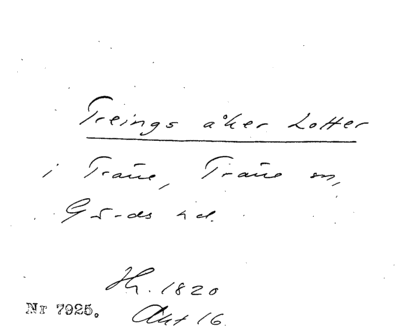 Treings åker Lotter
i Träne, Träne sn,
Gärds hd.
Hr. 1820
Akt 16.
Nr 7925.